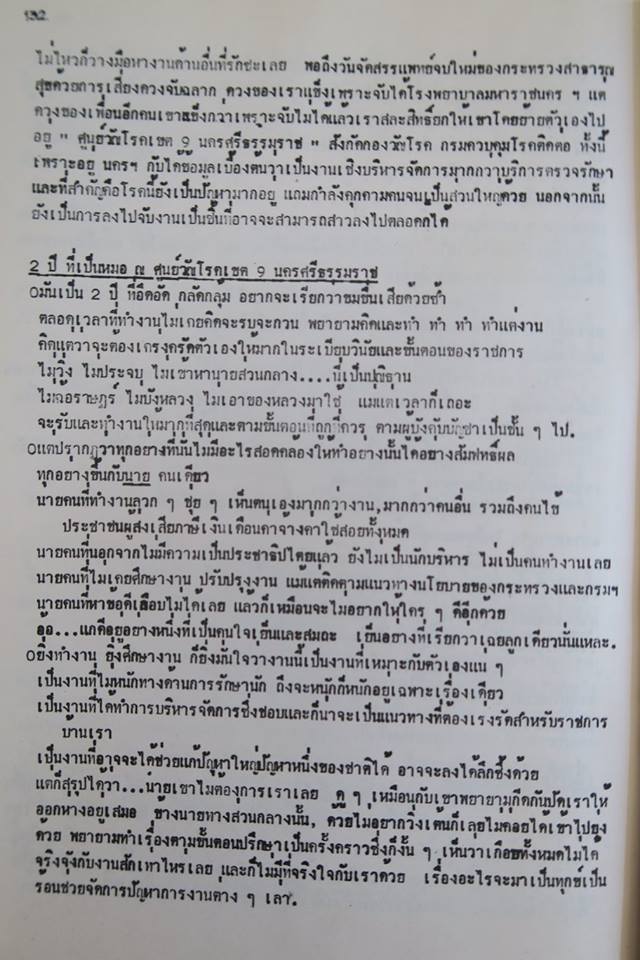 132
ไม่ไหวก็วางมือหางานด้านอื่นที่รักซะเลย พอถึงวันจัดสรรแพทย์จบใหม่ของกระทรวงสาธารณ
สุขด้วยการเสี่ยงดวงจับฉลาก ดวงของเราแข็งเพราะจับได้โรงพยาบาลมหาราชนคร ฯ แต่
ดวงของเพื่อนอีกคนเขาแข็งกว่าเพราะจับไม่ได้แล้วเราสละสิทธิ์ยกให้เขาโดยย้ายตัวเองไป
อยู่ " ศูนย์วัณโรคเขต 9 นครศรีธรรมราช " สังกัดกองวัณโรค กรมควบคุมโรคติดต่อ ทั้งนี้
เพราะอยู่ นครฯ กับได้ข้อมูลเบื้องต้นว่าเป็นงานเชิงบริหารจัดการมากกว่าบริการตรวจรักษา
และที่สำคัญคือโรคนี้ยังเป็นปัญหามากอยู่ แถมกำลังคุกคามคนจนเป็นส่วนใหญ่ด้วย นอกจากนั้น
ยังเป็นการลงไปจับงานเป็นชิ้นที่อาจจะสามารถสาวลงไปตลอดก็ได้
2 ปี ที่เป็นหมอ ณ ศูนย์วัณโรคเขต 9 นครศรีธรรมราช
0มันเป็น 2 ปี ที่อึดอัด กลัดกลุ้ม อยากจะเรียกว่าขมขื่นเสียด้วยซ้ำ
ตลอดเวลาที่ทำงานไม่เคยคิดจะรบจะกวน พยายามคิดและทำ ทำ ทำ ทำแต่งาน
คิดแต่ว่าจะต้องเคร่งครัดตัวเองให้มากในระเบียบวินัยและขั้นตอนของราชการ
ไม่วิ่ง ไม่ประจบ ไม่เข้าหานายส่วนกลาง....นี่เป็นปณิธาน
ไม่ฉ้อราษฎร์ ไม่บังหลวง ไม่เอาของหลวงมาใช้ แม้แต่เวลาก็เถอะ
จะรับและทำงานให้มากที่สุดและตามขั้นตอนที่ถูกที่ควร ตามผู้บังคับบัญชาเป็นชั้น ๆ ไป.
0แต่ปรากฏว่าทุกอย่างที่นั่นไม่มีอะไรสอดคล้องให้ทำอย่างนั้นได้อย่างสัมฤทธิ์ผล
ทุกอย่างขึ้นกับนาย คนเดียว
นายคนที่ทำงานลวก ๆ ชุ่ย ๆ เห็นตนเองมากกว่างาน,มากกว่าคนอื่น รวมถึงคนไข้
ประชาชนผู้ส่งเสียภาษีเงินเดือนค่าจ้างค่าใช้สอยทั้งหมด
นายคนที่นอกจากไม่มีความเป็นประชาธิปไตยแล้ว ยังไม่เป็นนักบริหาร ไม่เป็นคนทำงานเลย
นายคนที่ไม่เคยศึกษางาน ปรับปรุงงาน แม้แต่ติดตามแนวทางนโยบายของกระทรวงและกรมฯ
นายคนที่หาข้อดีเกือบไม่ได้เลย แล้วก็เหมือนจะไม่อยากให้ใคร ๆ ดีอีกด้วย
อ้อ...แกดีอยู่อย่างหนึ่งที่เป็นคนใจเย็นและสมถะ เย็นอย่างที่เรียกว่าเฉยลูกเดียวนั่นแหละ.
0ยิ่งทำงาน ยิ่งศึกษางาน ก็ยิ่งมั่นใจว่างานนี้เป็นงานที่เหมาะกับตัวเองแน่ ๆ
เป็นงานที่ไม่หนักทางด้านการรักษานัก ถึงจะหนักก็หนักอยู่เฉพาะเรื่องเดียว
เป็นงานที่ได้ทำการบริหารจัดการซึ่งชอบและก็น่าจะเป็นแนวทางที่ต้องเร่งรัดสำหรับราชการ
บ้านเรา
เป็นงานที่อาจจะได้ช่วยแก้ปัญหาใหญ่ปัญหาหนึ่งของชาติได้ อาจจะลงได้ลึกซึ้งด้วย
แต่ก็สรุปได้ว่า...นายเขาไม่ต้องการเราเลย ดู ๆ เหมือนกับเขาพยายามกีดกันปัดเราให้
ออกห่างอยู่เสมอ ข้างนายทางส่วนกลางนั้น, ด้วยไม่อยากวิ่งเต้นก็เลยไม่ค่อยได้เข้าไปยุ่ง
ด้วย พยายามทำเรื่องตามขั้นตอนปรึกษาเป็นครั้งคราวซึ่งก็งั้น ๆ เห็นว่าเกือบทั้งหมดไม่ได้
จริงจังกับงานสักเท่าไหร่เลย และก็ไม่มีที่จริงใจกับเราด้วย เรื่องอะไรจะมาเป็นทุกข์เป็น
ร้อนช่วยจัดการปัญหาการงานต่าง ๆ เล่า.